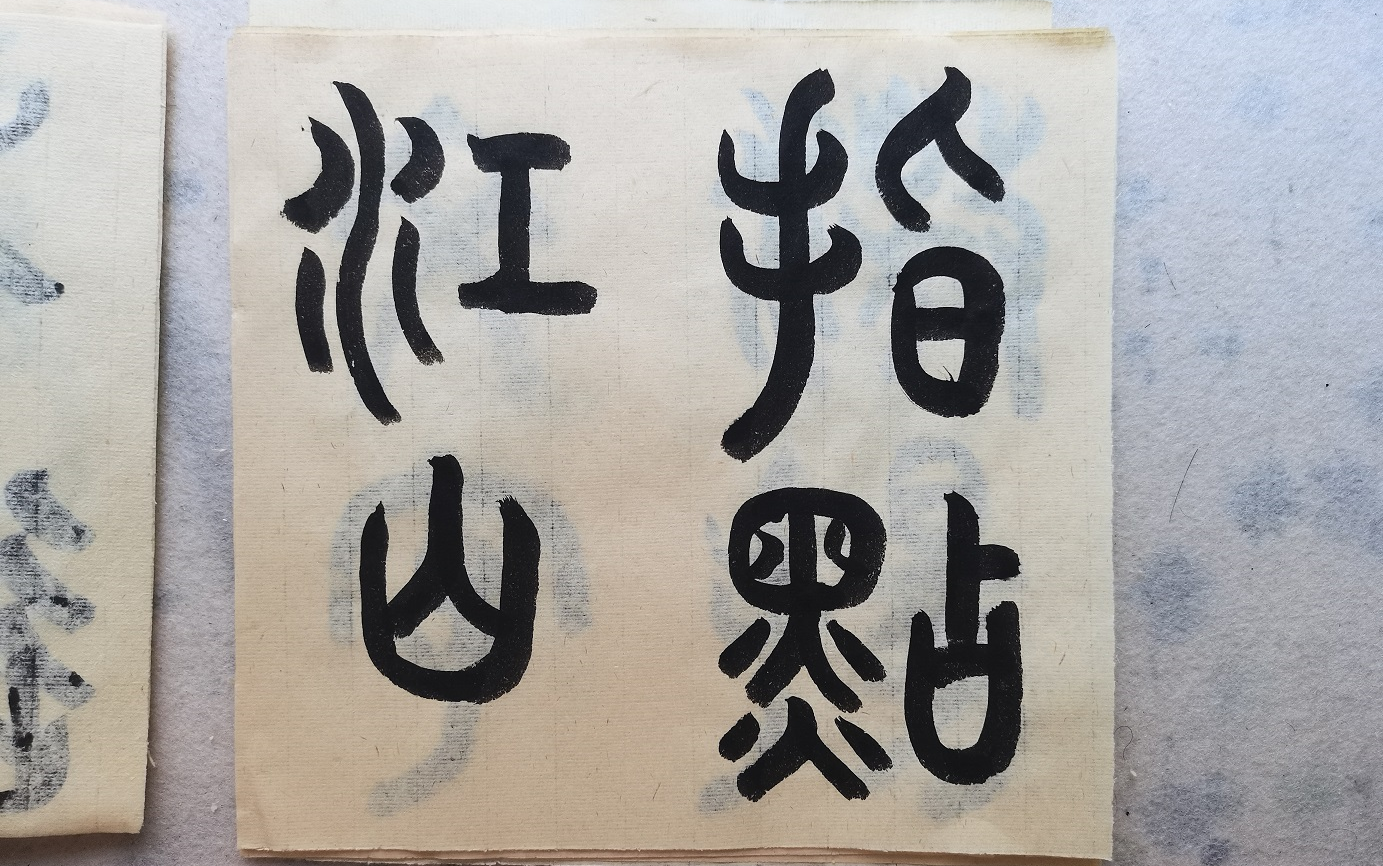 指點
江山